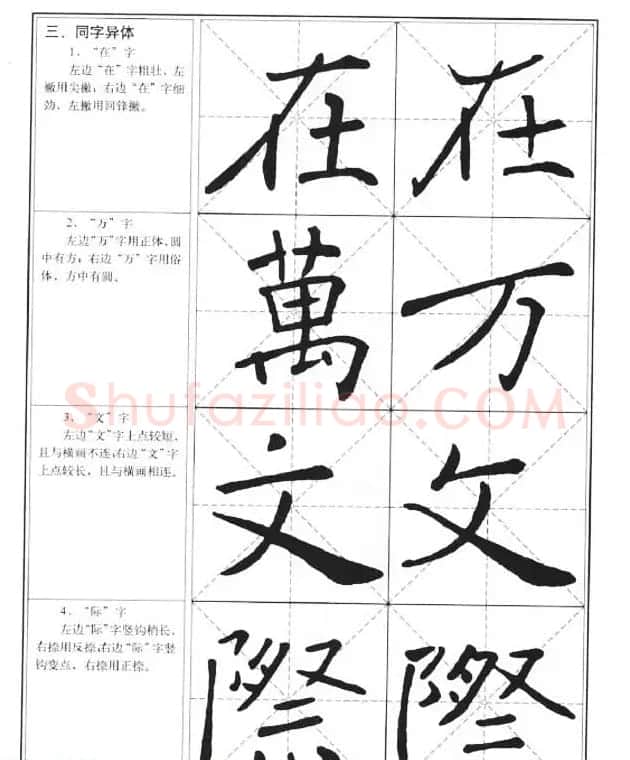 三. 同字异体
1. “在”字
左边“在”字粗壮、左
撇用尖撇；右边“在”字细
劲、左撇用回锋撇。
在 在
2. “万”字
左边“万”字用正体、圆
中有方；右边“万”字用俗
体、方中有圆。
萬 万
Shufaziliao.COM
3. “文”字
左边“文”字上点较短，
且与横画不连；右边“文”字
上点较长，且与横画相连。
文 文
4. “际”字
左边“际”字竖钩稍长，
右捺用反捺；右边“际”字竖
钩变点，右捺用正捺。
際 際